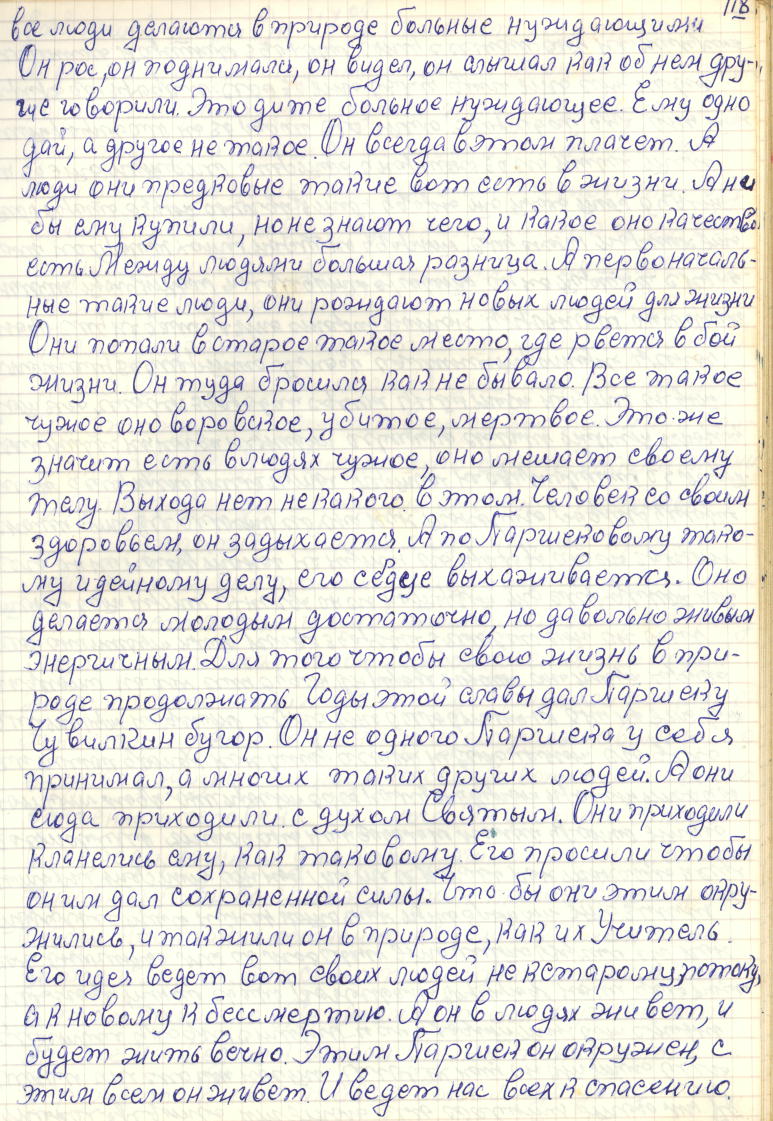 118
все люди делаются в природе больные нуждающими
Он рос, он поднимался, он видел, он слышал как об нем дру-
гие говорили. Это дите больное нуждающее. Ему одно
дай, а другое не такое. Он всегда в этом плачет. А
люди они предковые такие вот есть в жизни. Они
бы ему купили, но не знают чего, и какое оно качество
есть. Между людями большая разница. А первоначаль-
ные такие люди, они рождают новых людей для жизни
Они попали в старое такое место, где рвется в бой
жизни. Он туда бросился как не бывало. Все такое
чужое оно воровское, убитое, мертвое. Это же
значит есть в людях чужое, оно мешает своему
телу. Выхода нет не какого в этом. Человек со своим
здоровьем, он задыхается. А по Паршековому тако-
му идейному делу, его седце выхаживается. Оно
делается молодым достаточно, но давольно живым
энергичным. Для того чтобы свою жизнь в при-
роде продолжать Годы этой славы дал Паршеку
Чувилкин бугор. Он не одного Паршека у себя
принимал, а многих таких других людей. А они
сюда приходили с духом Святым. Они приходили
кланелись ему, как таковому. Его просили чтобы
он им дал сохраненной силы. Что бы они этим окру-
жились, и так жили он в природе, как их Учитель.
Его идея ведет вот своих людей не к старому потоку,
а к новому к бессмертию. А он в людях живет, и
будет жить вечно. Этим Паршек он окружен, с
этим всем он живет. И ведет нас всех к спасению.